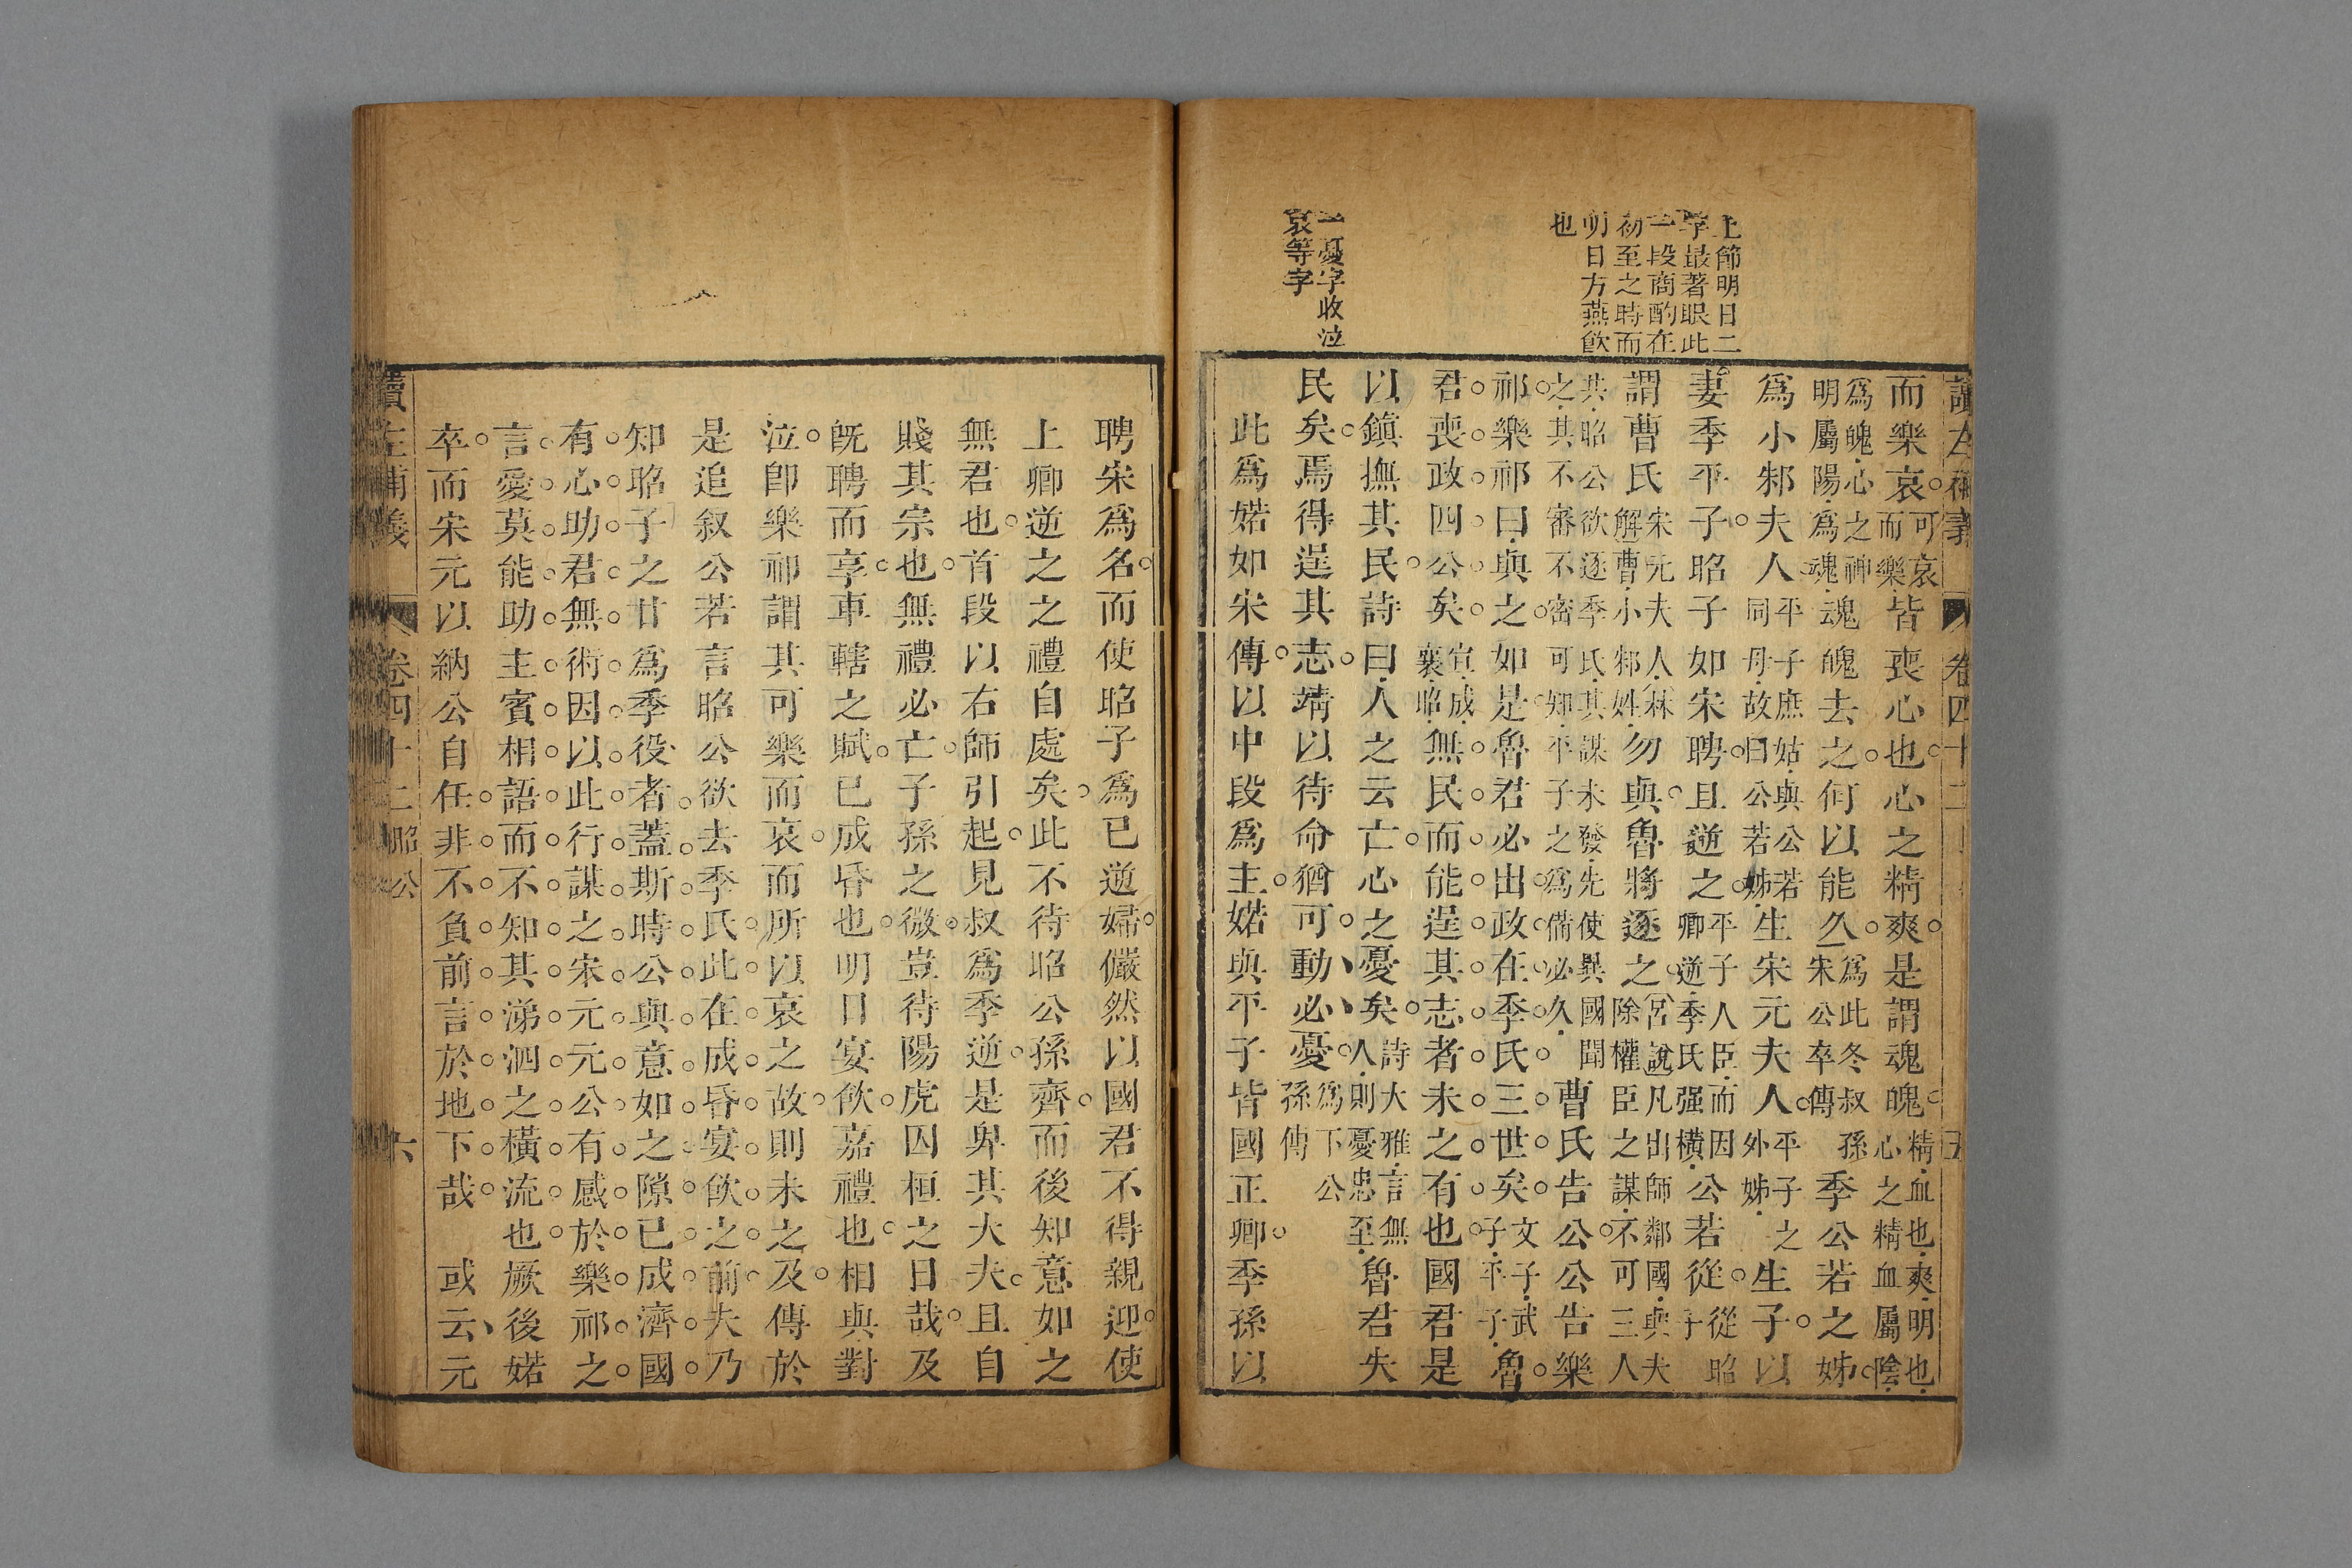 上節明日二
字最著眼此
一段商酌在
初至之時而
明日方燕飲
也
一憂字收泣
哀等字
卷四十二
五
而樂哀可哀而樂皆喪心也心之精爽是謂魂魄精血也爽明也心之精血屬陰
為魄心之神明屬陽為魂魂魄去之何以能久為此冬叔孫宋公卒傳季公若之姊
為小邾夫人平子庶姑與公若同母故曰公若姊生宋元夫人平子之外姊生子以
妻季平子昭子如宋聘且逆之平子人臣而因卿逆季氏强橫公若從從昭子
謂曹氏宋元夫人𥟖解曹小邾姓勿與魯將逐之宮說凡出師鄰國與夫除權臣之謀不可三人
共昭公欲逐季氏其謀未發先使異國聞之其不審不密可知平子之為備必久曹氏告公公告樂
祁樂祁曰與之如是魯君必出政在季氏三世矣文子武子平子魯
君喪政四公矣宣成襄昭無民而能逞其志者未之有也國君是
以鎮撫其民詩曰人之云亡心之憂矣詩大雅言無人則憂患至魯君失
民矣焉得逞其志靖以待命猶可動必憂為下公孫傳
此為婼如宋傳以中段為主婼與平子皆國正卿季孫以
聘宋為名而使昭子為已逆婦儼然以國君不得親迎使
上卿逆之之禮自處矣此不待昭公孫齊而後知意如之
無君也首段以右師引起見叔為季逆是卑其大夫且自
賤其宗也無禮必亡子孫之微豈待陽虎囚桓之日哉及
旣聘而享車轄之賦已成昏也明日宴飲嘉禮也相與對
泣卽樂祁謂其可樂而哀而所以哀之故則未之及傳於
是追叙公若言昭公欲去季氏此在成昏宴飲之前夫乃
知昭子之甘為季役者蓋斯時公與意如之隙已成濟國
有心助君無術因以此行謀之宋元元公有感於樂祁之
言愛莫能助主賓相語而不知其涕泗之橫流也厥後婼
卒而宋元以納公自任非不負前言於地下哉　或云元
讀左補義
卷四十二昭公
六